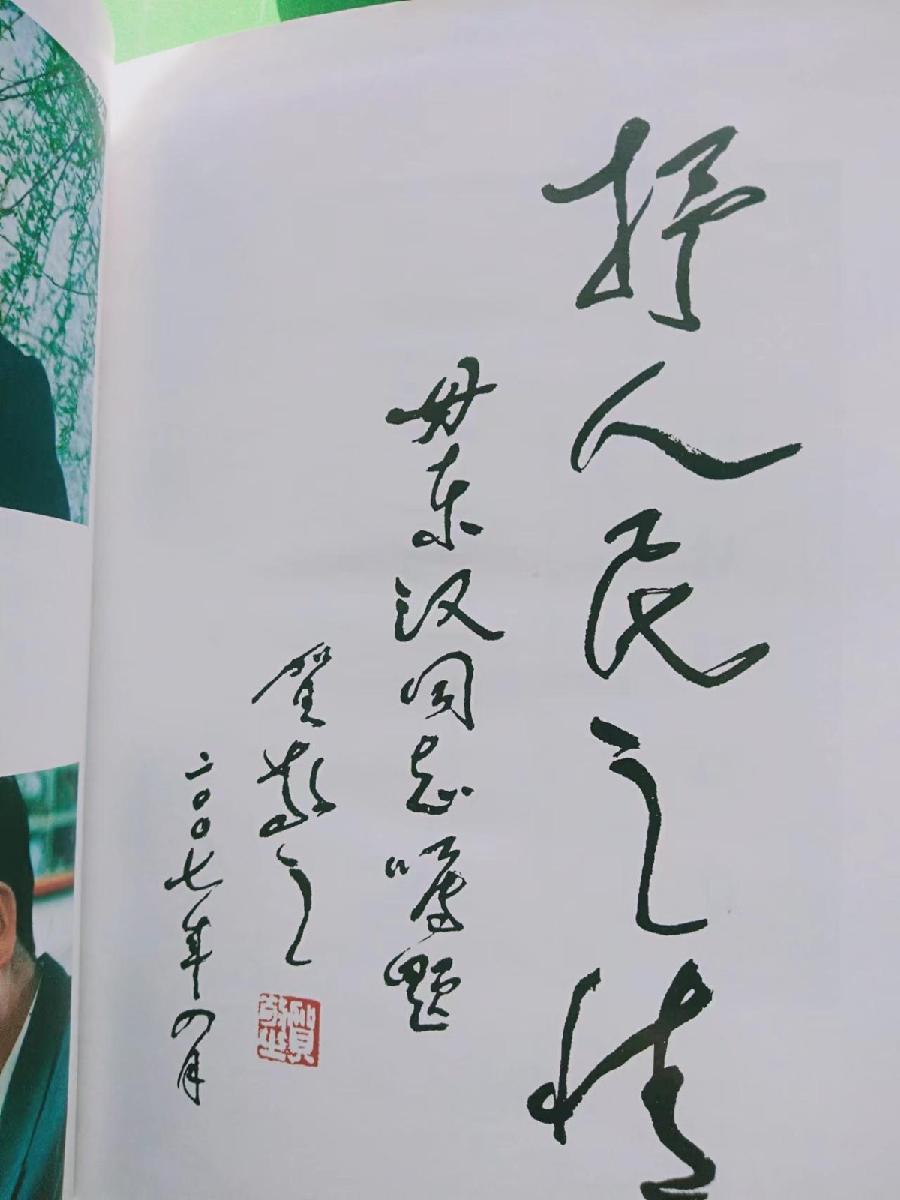 抒人民之情
毋东汉同志嘱题
贺敬之
二〇〇七年四月
贺敬之